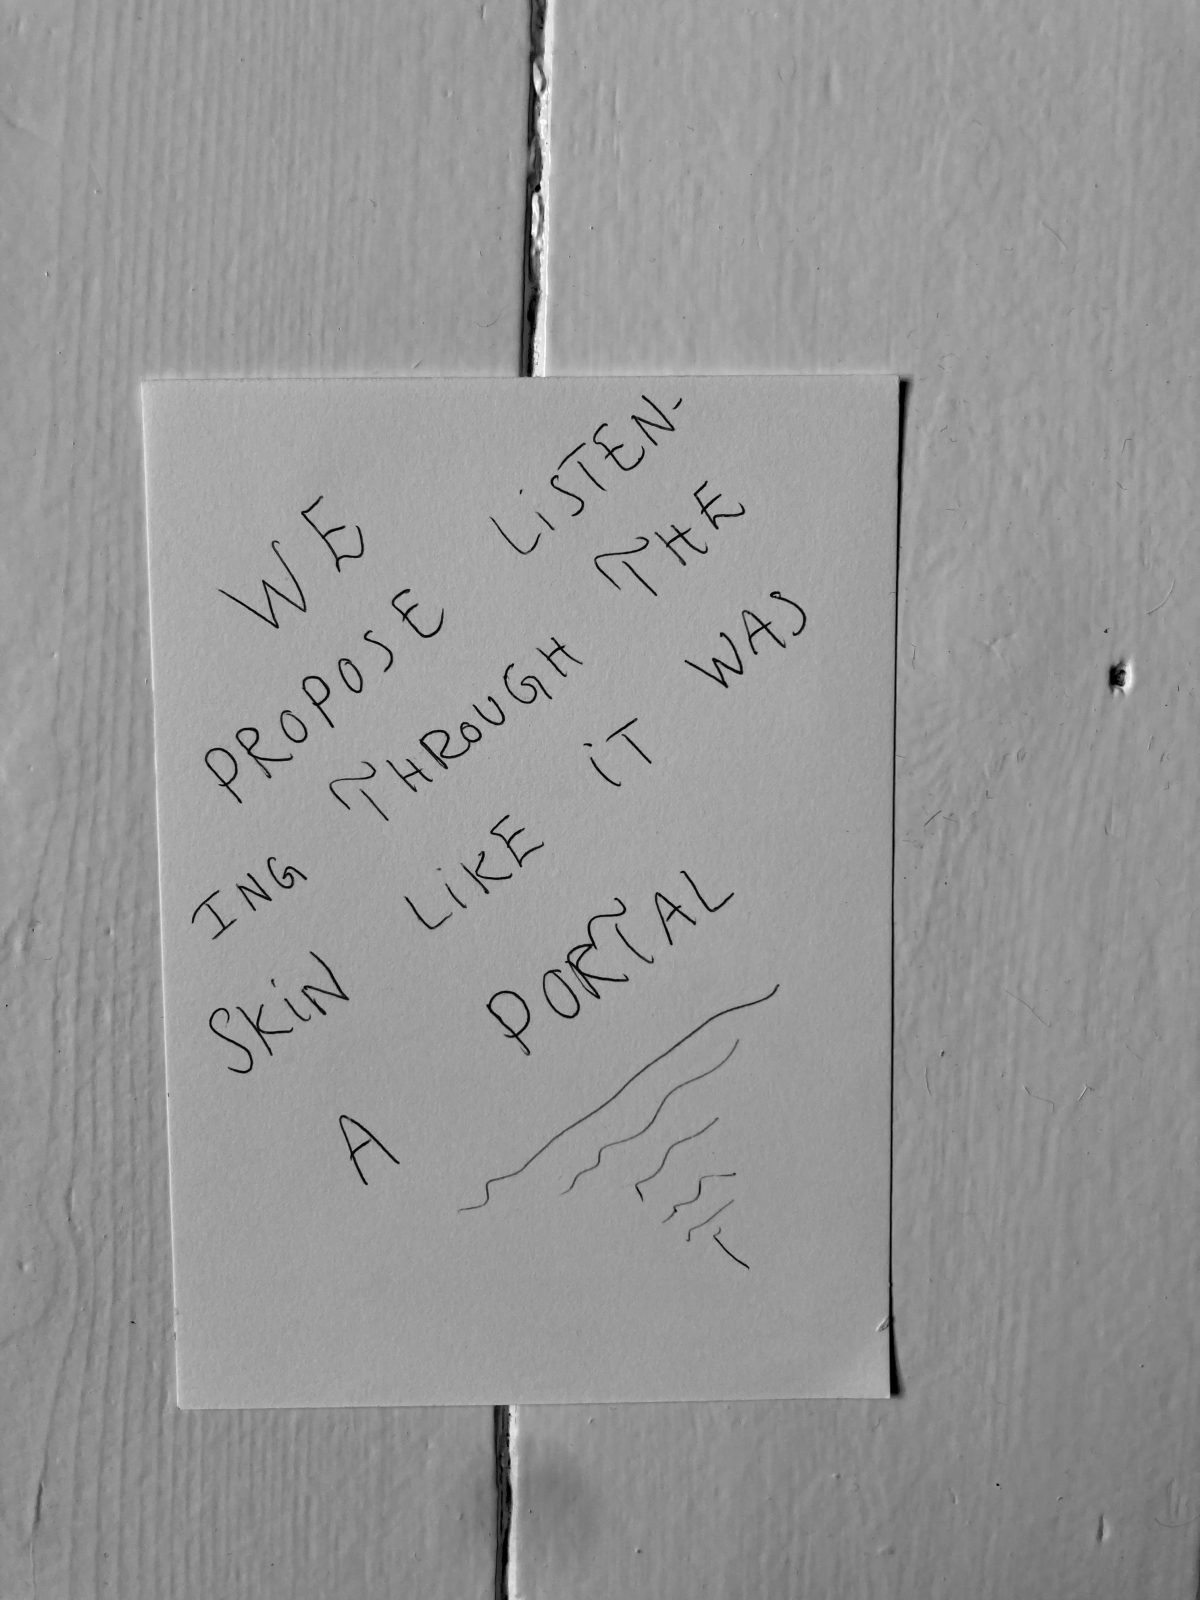 WE
PROPOSE LISTEN-
ING THROUGH THE
SKIN LIKE IT WAS
A PORTAL